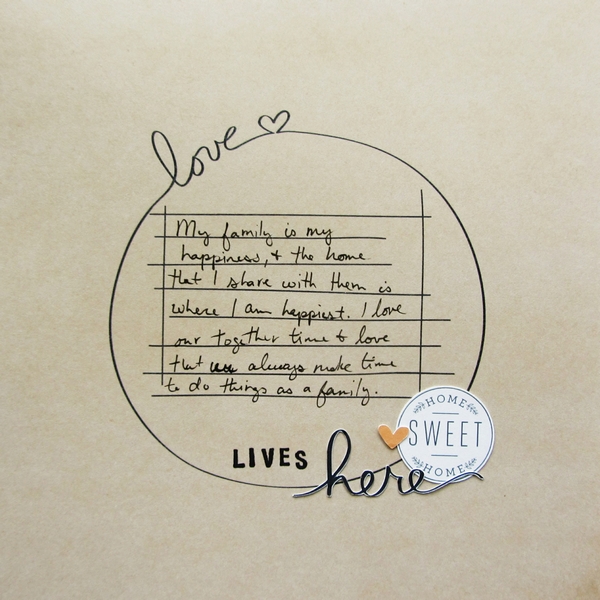 love
My family is my
happiness, & the home
that I share with them is
where I am happiest. I love
our together time & love
that we always make time
to do things as a family.
LIVES
here
HOME
SWEET
HOME